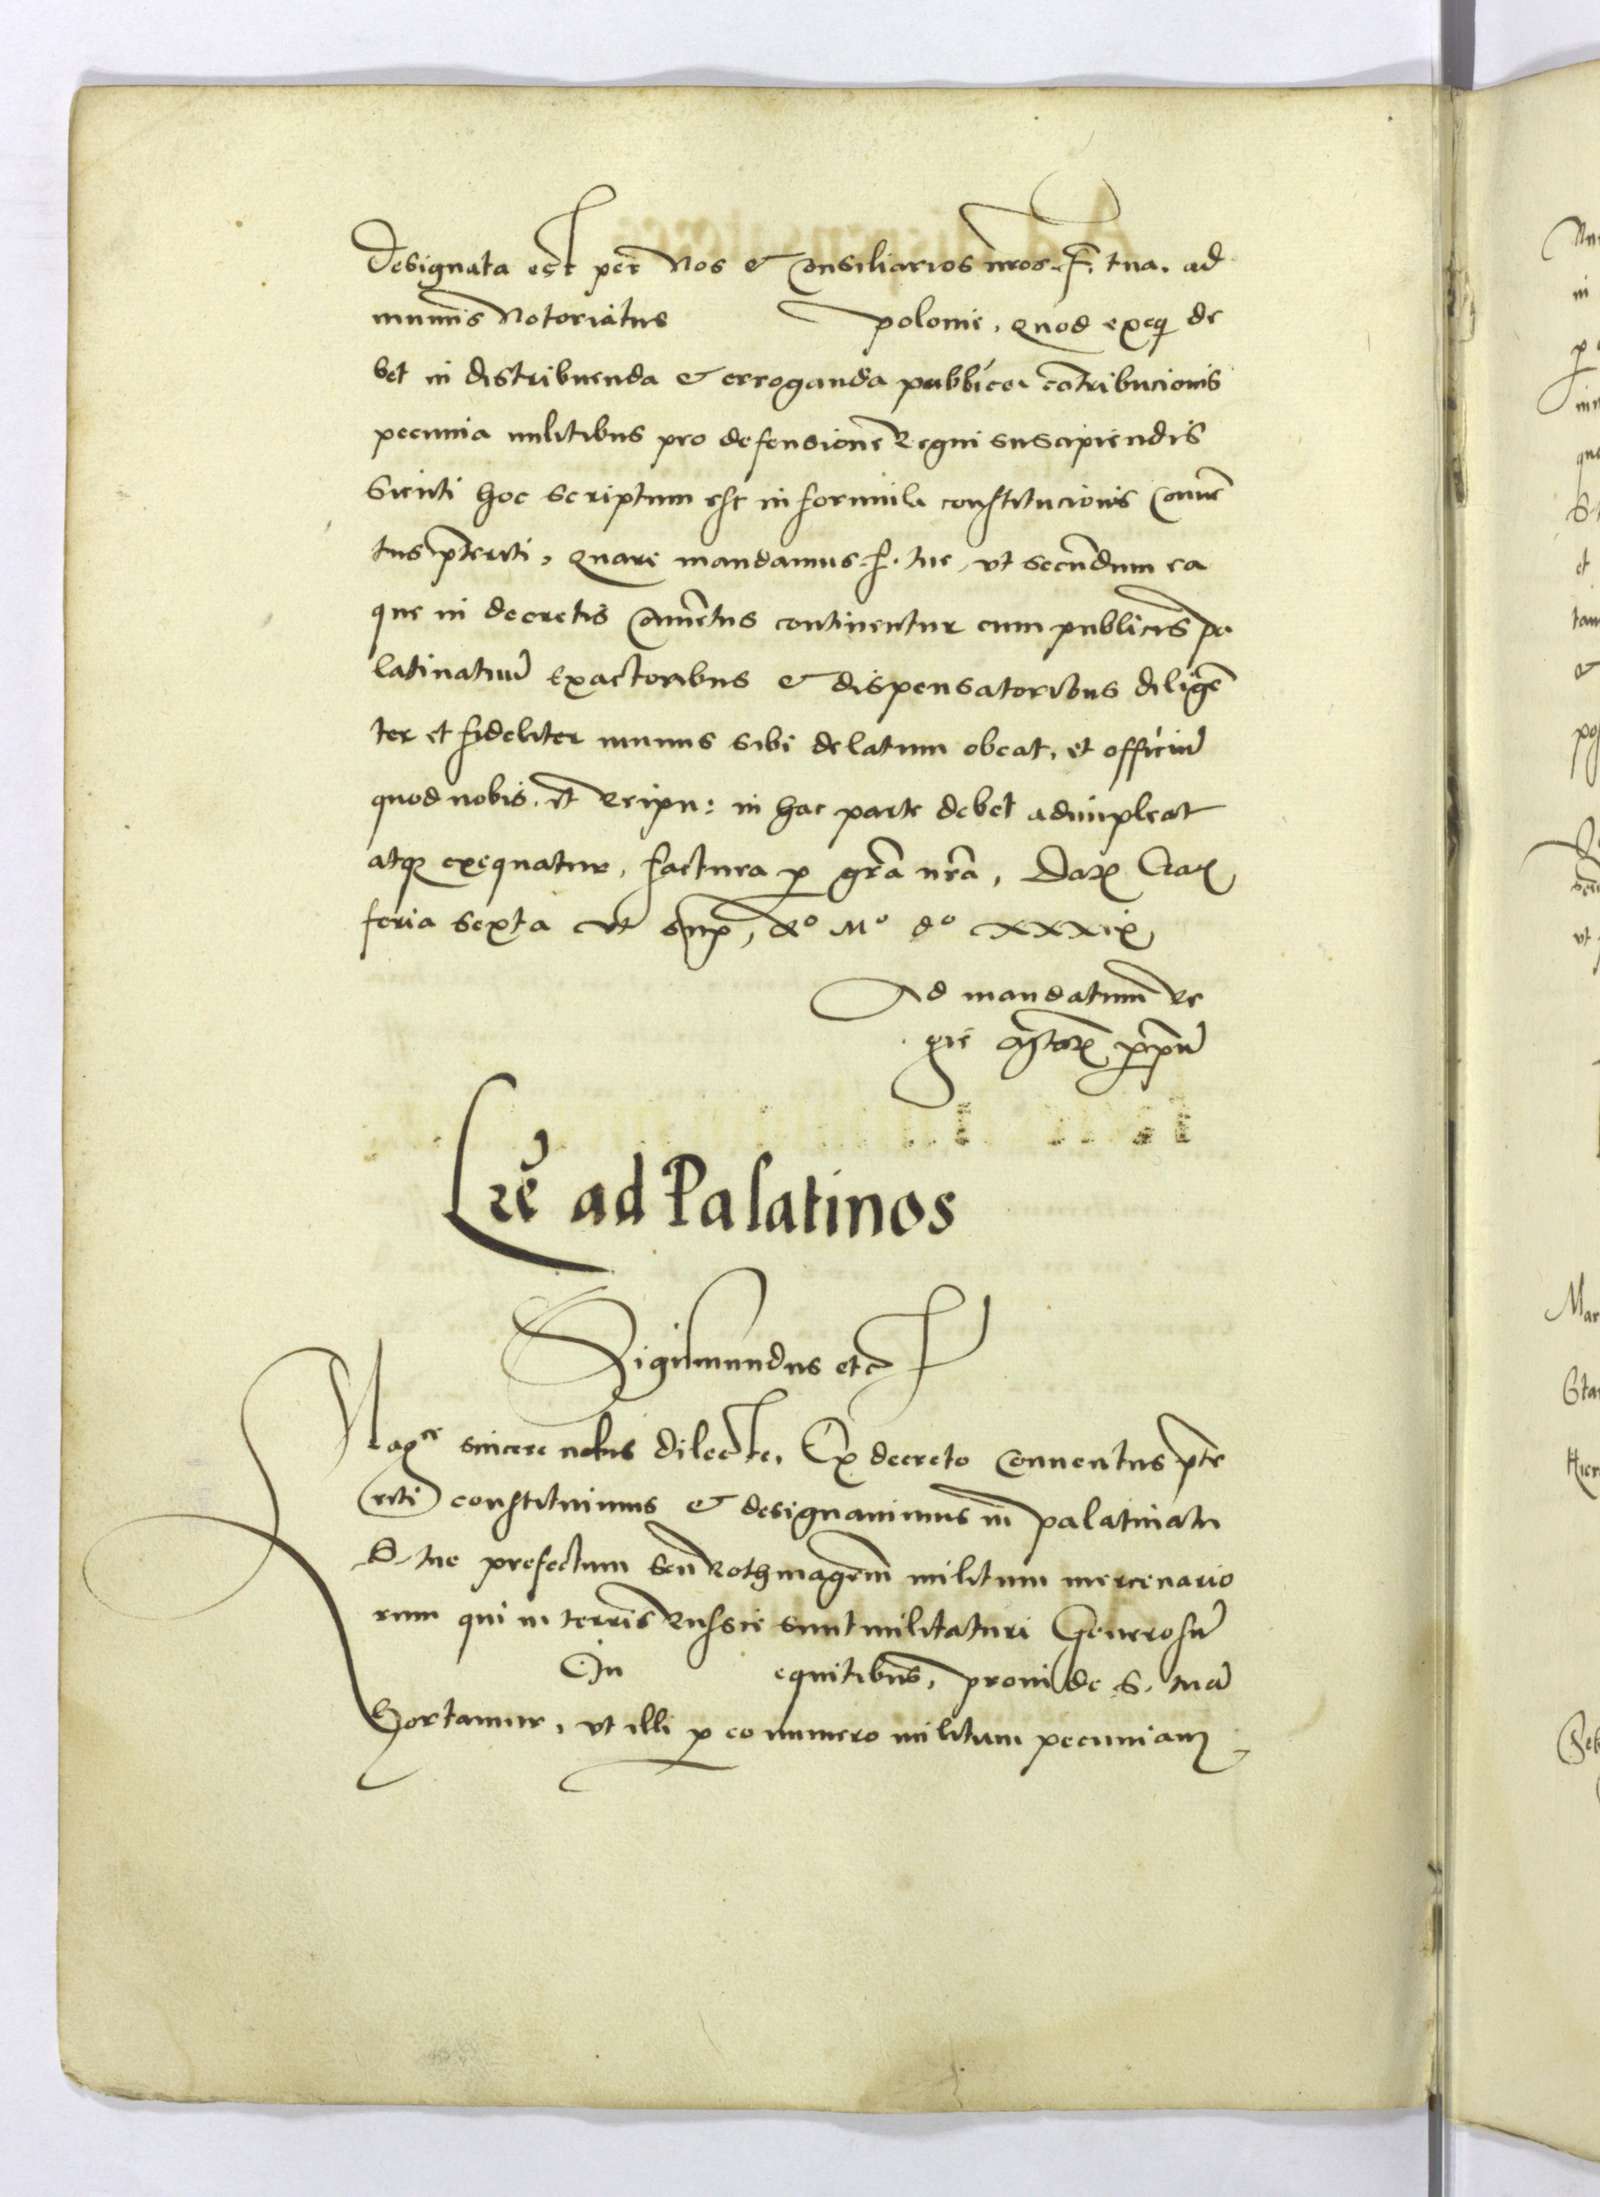 Designata est per Nos et Consiliarios nros. F. tua. ad
munus Notoriatus polonie, quod exeq de
bet in distribuenda et erroganda publica contribucionis
pecunia militibus pro defensione Regni suscipiendis
Sicuti hoc scriptum est in formula constitucionis Conuē
tus pteriti, quare mandamus. F. tue, vt secundum ea
que in decretis Conuētus continentur cum publicis pa
latinatuū Exactoribus et dispensatoribus diligē
ter et fideliter munus sibi delatum obeat, et officiū
quod nobis. et Reipu: in hac parte debet adimpleat
atqꝫ exequatur, factura p grā nrā, Dat Crac
feria sexta vt sup, Aº Mº dº xxxix
Ad mandatum Re
gie
Lrē ad Palatinos
Sigismundus etc
Magce sincere nobis dilecte, Ex decreto Conuentus pte
riti constituimus et designauimus in palatinatu
S. tue prefectum seu Rothmagrem militum mercenario
rum qui in terris Russie sunt militaturi Generosū
In equitibus, proinde S. tuā
Hortamur, vt illi p eo numero militum pecuniam